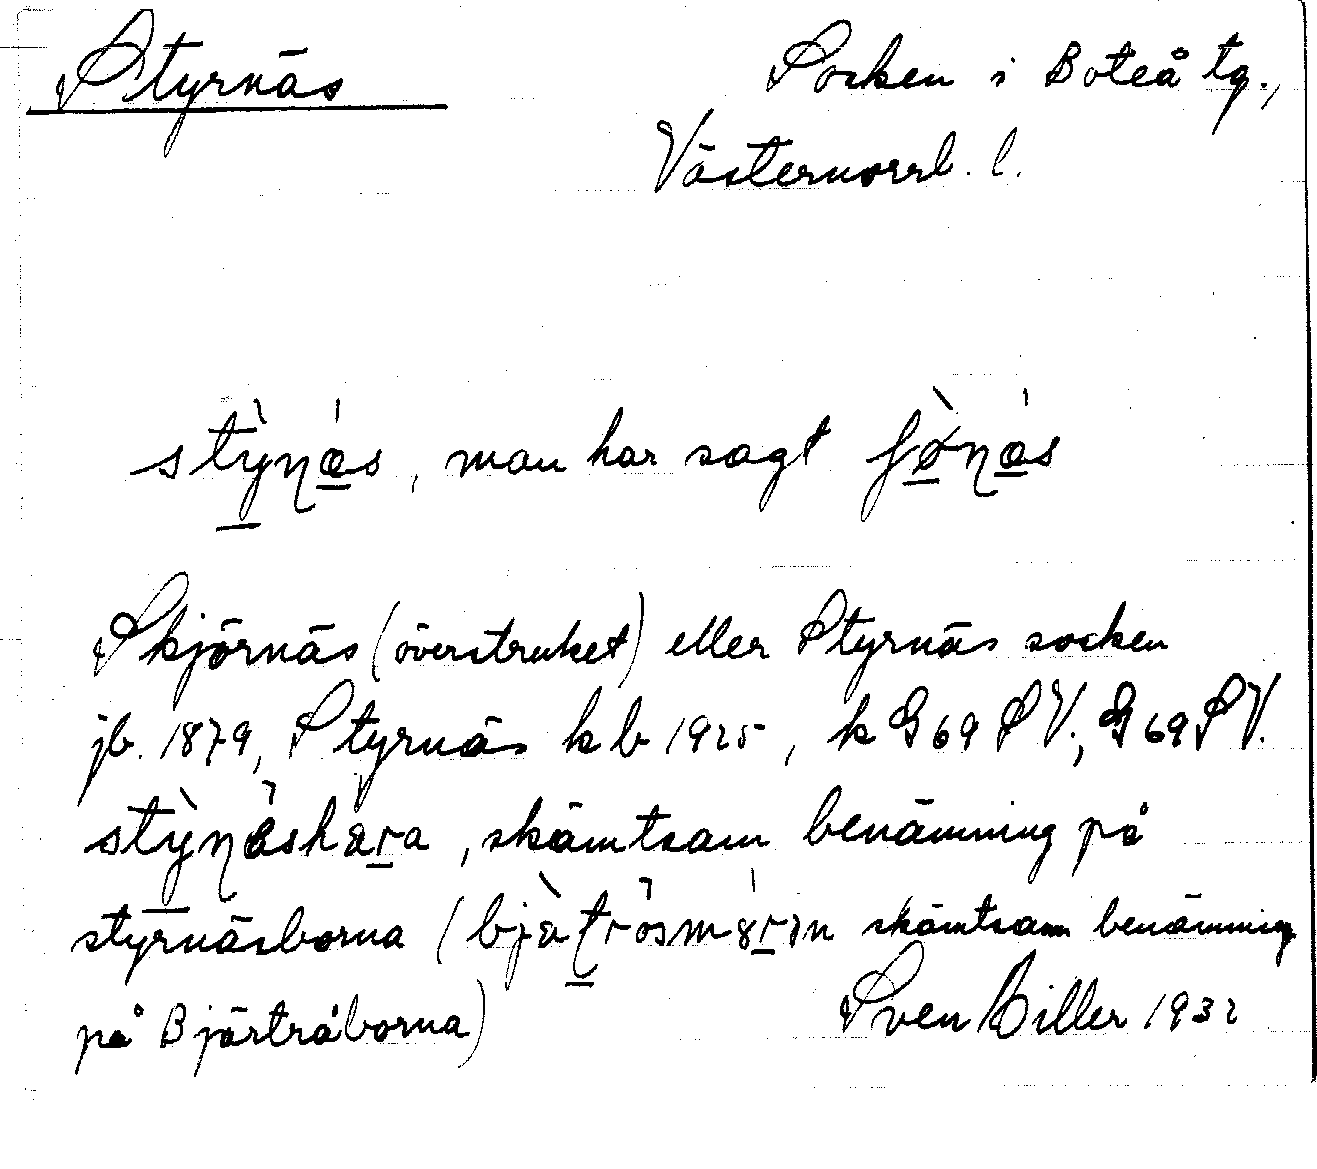 Styrnäs
Socken i Boteå tg.,
Västernorrl. l.
stỳɳás, man har sagt
Skjörnäs (överstruket) eller Styrnäs socken
jb. 1879, Styrnäs kb 1925, k G 69 SV., G 69 SV.
skämtsam benämning på
styrnäsborna ( skämtsam benämning
på Bjärtråborna)
Sven Biller 1932